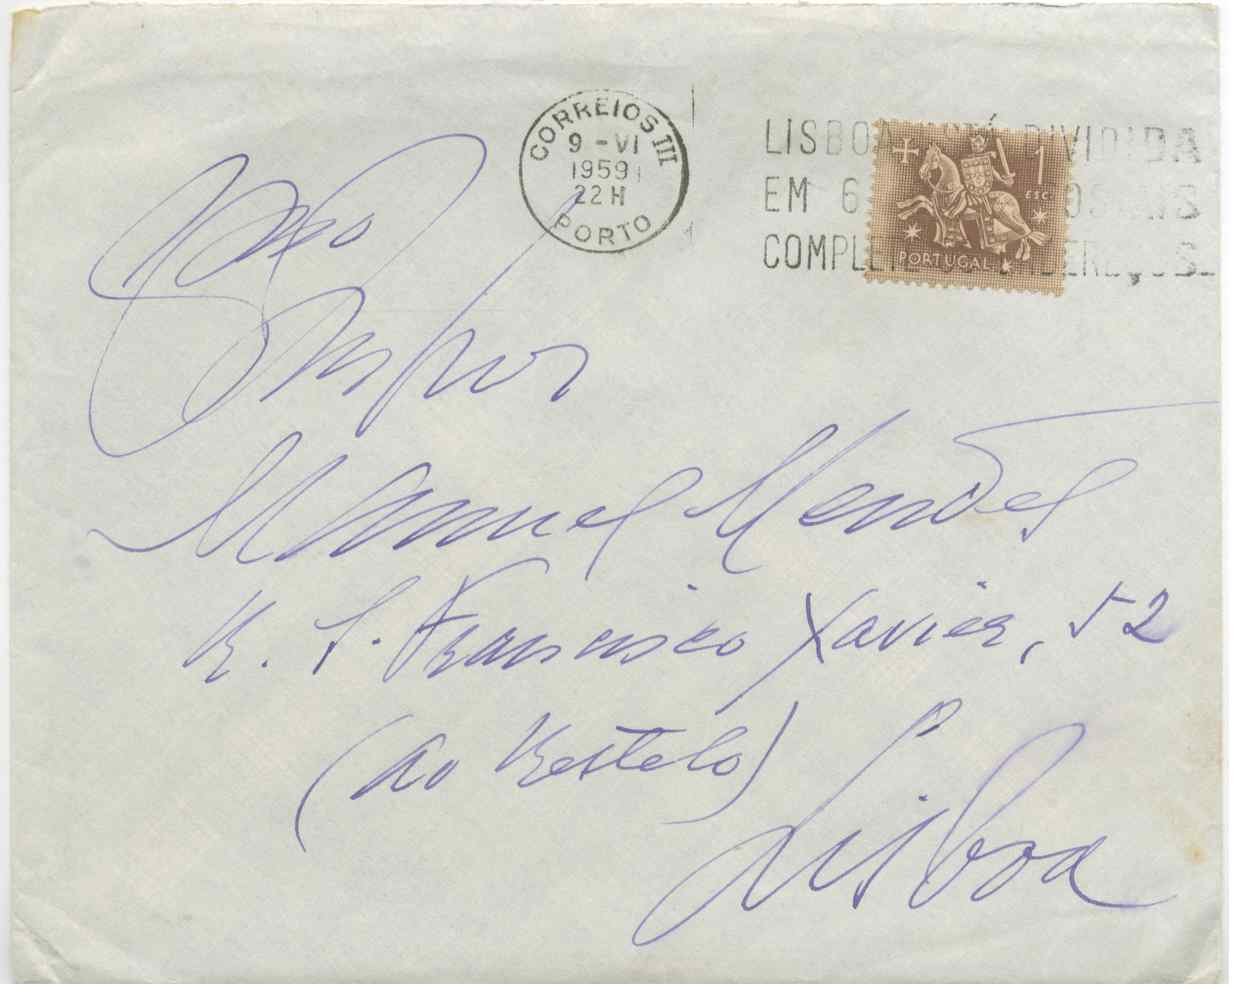 CORREIOS III
9 - VI
1959
22 H
PORTO
LISBOA ESTÁ DIVIDIDA
EM 6
COMPLETE ENDEREÇOS
1
ESC.
PORTUGAL
Senhor
Manuel Mendes
R. S. Francisco Xavier, 52
(ao Restelo)
Lisboa